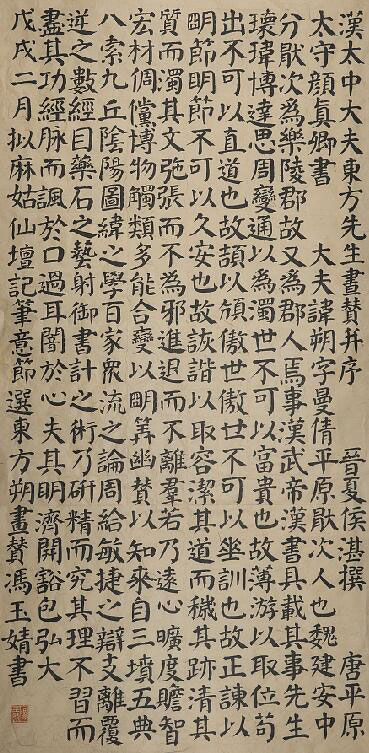 漢太中大夫東方先生畫贊并序 晉夏侯湛撰 唐平原
太守顏真卿書 大夫諱朔字曼倩平原厭次人也魏建安中
分厭次為樂陵郡故又為郡人焉事漢武帝漢書具載其事先生
瓌瑋博達思周變通以為濁世不可以富貴也故薄游以取位苟
出不可以直道也故頡以頏傲世傲世不可以垂訓也故正諫以
眀節明節不可以久安也故詼諧以取容潔其道而穢其跡清其
質而濁其文弛張而不為邪進退而不離羣若乃遠心曠度贍智
宏材倜儻博物觸類多能合變以眀筭幽贊以知來自三墳五典
八索九丘陰陽圖緯之學百家眾流之論周給敏捷之辯支離覆
逆之數經目藥石之藝射御書計之術乃研精而究其理不習而
盡其功經脈而諷於口過耳闇於心夫其明濟開豁包弘大
戊戌二月拟麻姑仙壇記筆意節選東方朔畫贊馮玉婧書